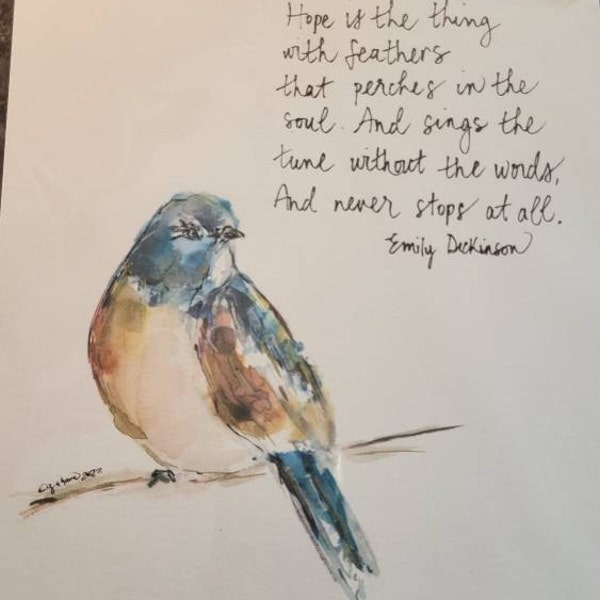 Hope is the thing
with feathers
that perches in the
soul. And sings the
tune without the words,
And never stops at all.
Emily Dickinson